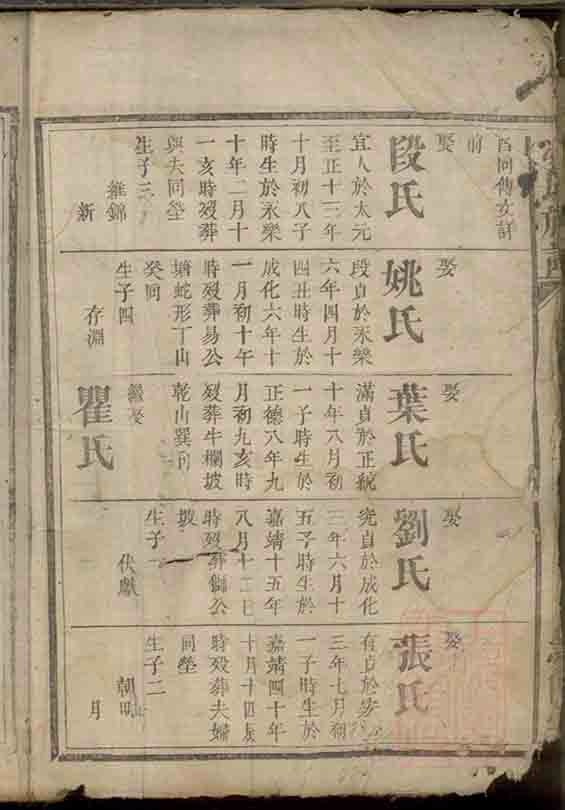 前
娶
段氏
宜人於太元
至正十三年
十月初八子
時生於永樂
十年二月十
一亥時歿葬
與夫同塋
生子三
維錦
新
娶
姚氏
段貞於永樂
六年四月十
四丑時生於
成化六年十
一月初十午
時歿葬易公
塘蛇形丁山
癸向
生子四
存淵
娶
葉氏
滿貞於正統
十年八月初
一子時生於
正德八年九
月初九亥時
歿葬牛欄坡
乾山巽向
繼娶
瞿氏
娶
劉氏
完貞於成化
三年六月十
五子時生於
嘉靖十五年
八月十二日
時歿葬獅公
坡
生子一
伏獻
娶
張氏
有貞於
三年七月初
一子時生於
嘉靖四十年
十月十四辰
時歿葬夫婦
同塋
生子二
朝明
月